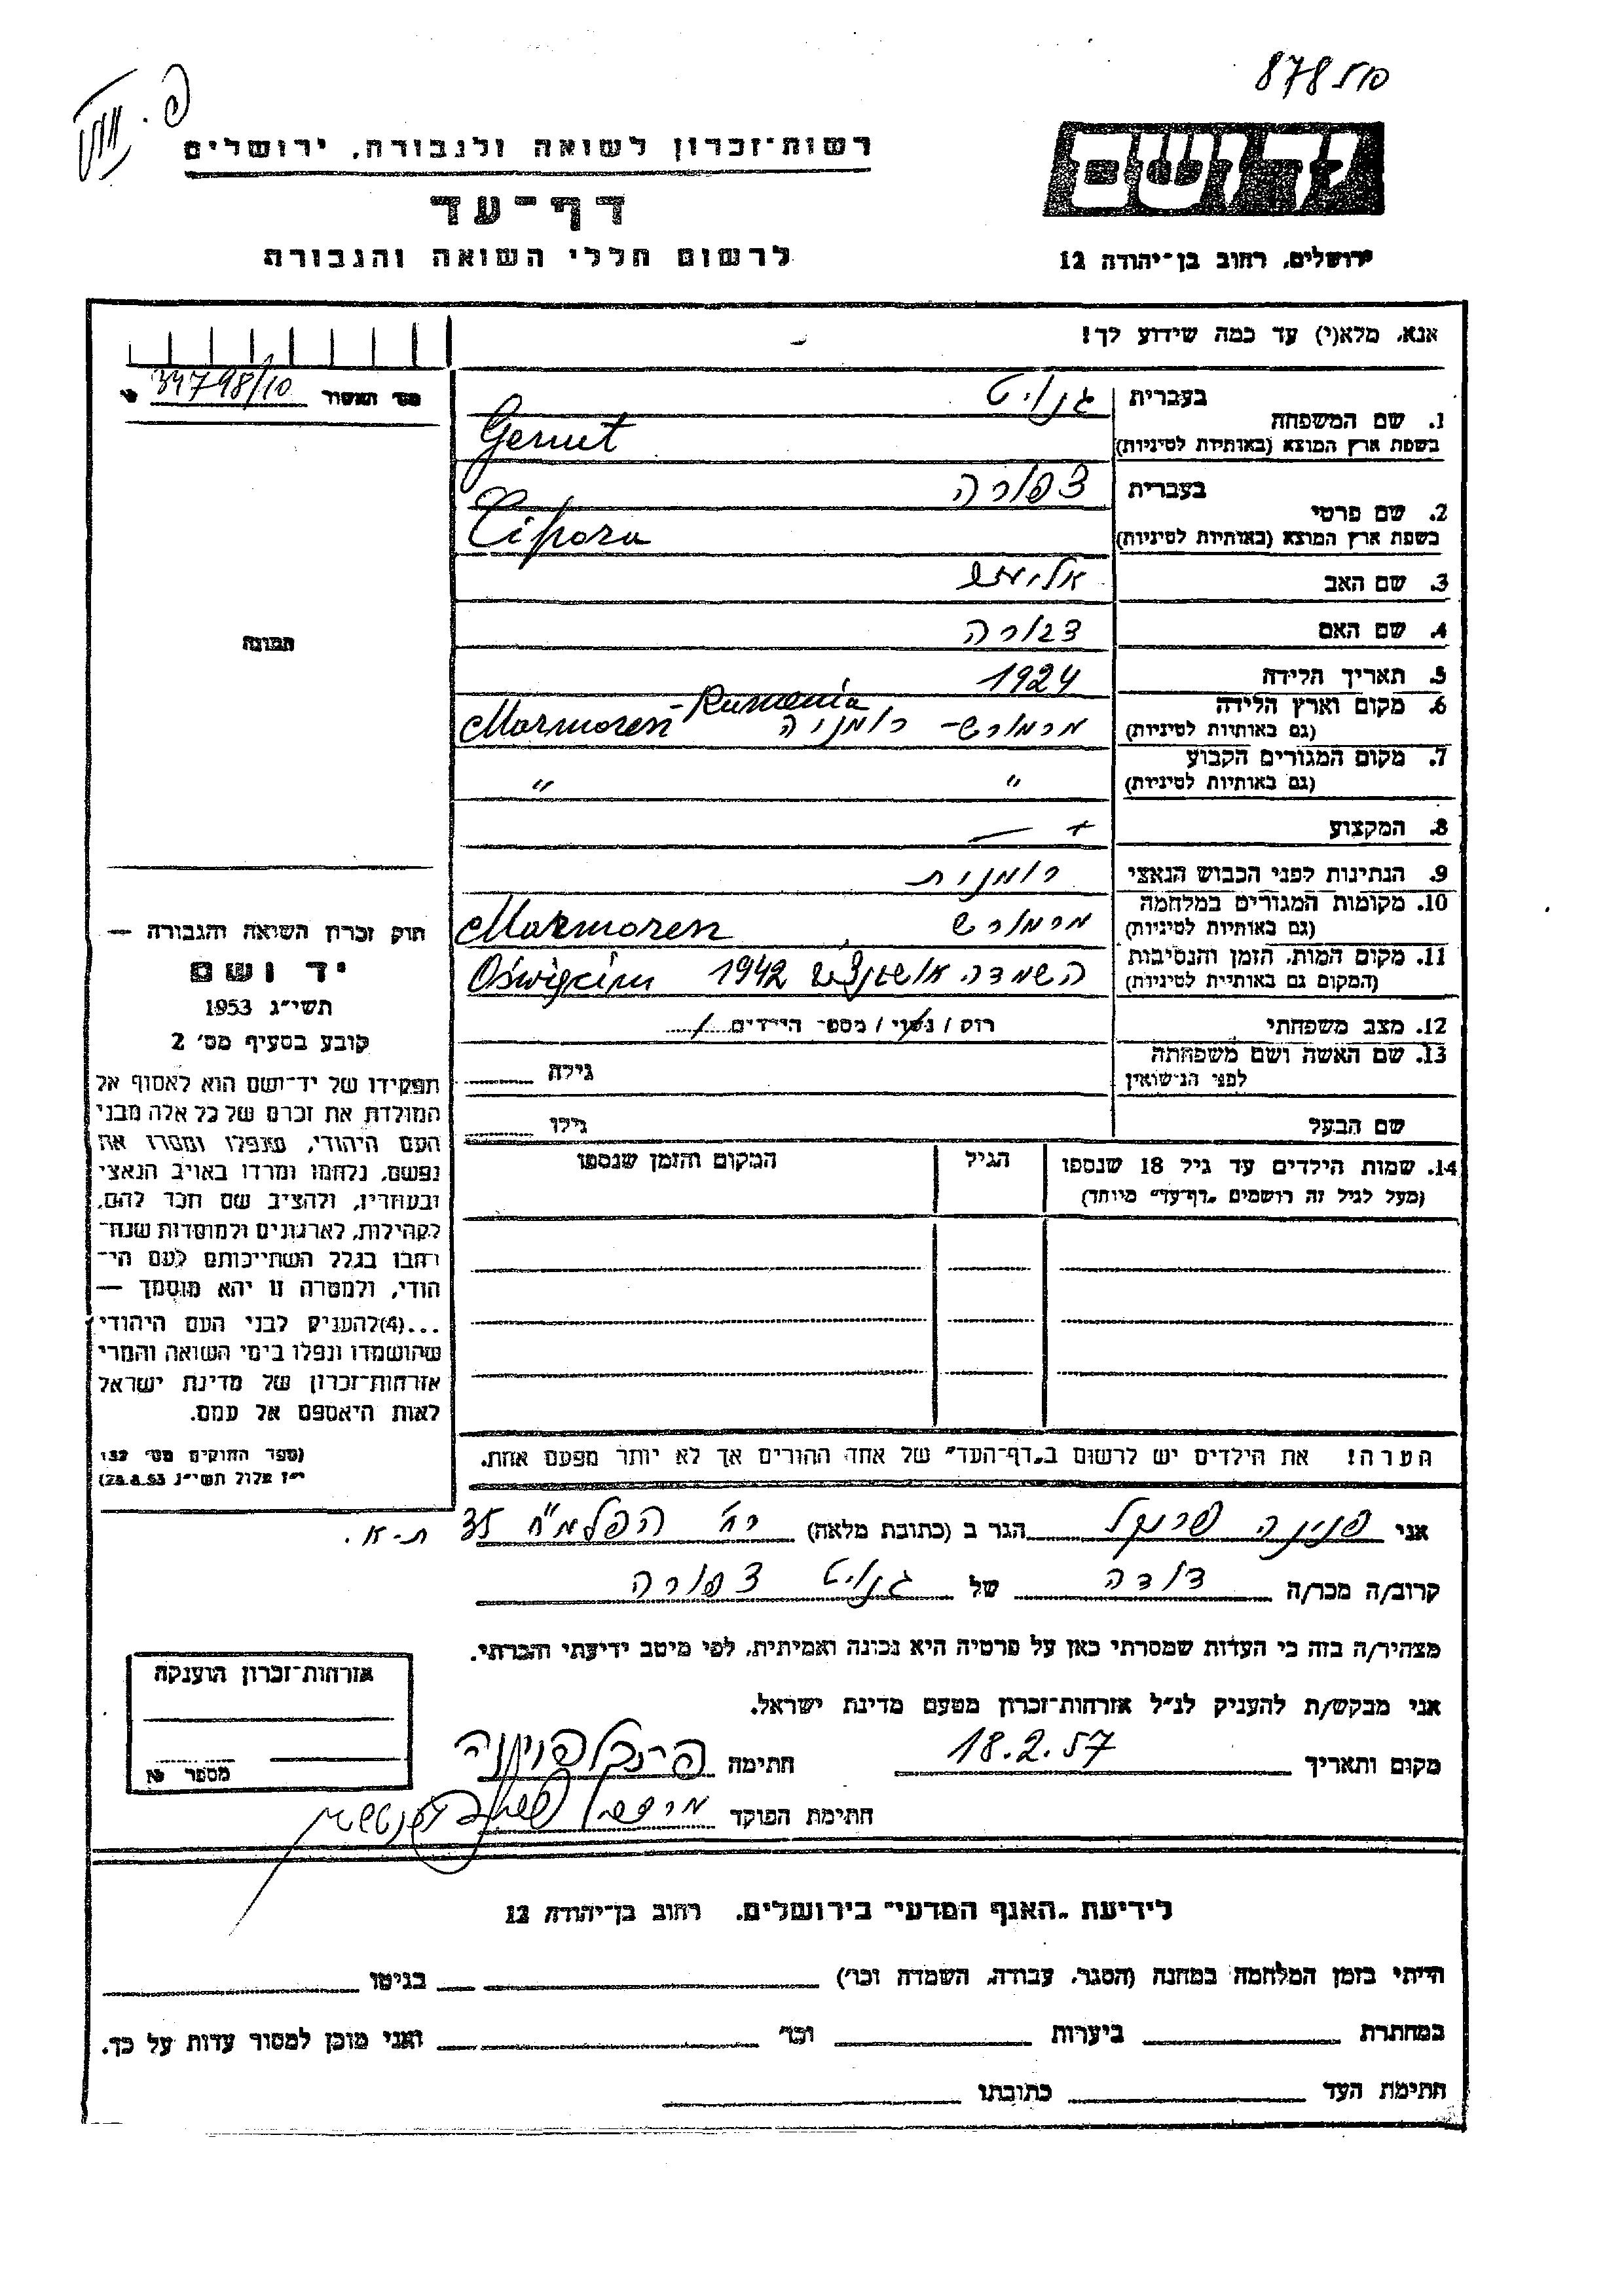 878 פולג
רשות־זכרון לשואה ולגבורה, ירושלים
דף־עד
לרשום חללי השואה והגבורה
יד ושם
ירושלים, רחוב בן־יהודה 12
אנא, מלא(י) עד כמה שידוע לך!
34798/10
1. שם המשפחה
בעברית
בשפת ארץ המוצא (באותיות לטיניות)
Gernet
2. שם פרטי
בעברית צפורה
בשפת ארץ המוצא (באותיות לטיניות)
Cipora
3. שם האב
4. שם האם דבורה
5. תאריך הלידה 1924
6. מקום וארץ הלידה
(גם באותיות לטיניות)
מרמורש – רומניה Marmoren - Rumenia
7. מקום המגורים הקבוע
(גם באותיות לטיניות)
" "
8. המקצוע —
9. הנתינות לפני הכבוש הנאצי רומנית
10. מקומות המגורים במלחמה
(גם באותיות לטיניות)
מרמורש Marmoren
11. מקום המות, הזמן והנסיבות
(המקום גם באותיות לטיניות)
השמדה אושוינצים 1942 Oświęcim
12. מצב משפחתי רוק / נשוי / מספר הילדים /
13. שם האשה ושם משפחתה
לפני הנישואין
גילה
שם הבעל גילו
14. שמות הילדים עד גיל 18 שנספו
(מעל לגיל זה רושמים „דף־עד" מיוחד)
הגיל
המקום והזמן שנספו
הערה! את הילדים יש לרשום ב„דף־העד" של אחד ההורים אך לא יותר מפעם אחת.
תמונה
חוק זכרון השואה והגבורה —
יד ושם
תשי"ג 1953
קובע בסעיף מס' 2
תפקידו של יד־ושם הוא לאסוף אל
המולדת את זכרם של כל אלה מבני
העם היהודי, שנפלו ומסרו את
נפשם, נלחמו ומרדו באויב הנאצי
ובעוזריו, ולהציב שם וזכר להם,
לקהילות, לארגונים ולמוסדות שנח־
רבו בגלל השתייכותם לעם הי־
הודי, ולמטרה זו יהא מוסמך —
...(4)להעניק לבני העם היהודי
שהושמדו ונפלו בימי השואה והמרי
אזרחות־זכרון של מדינת ישראל
לאות היאספם אל עמם.
(ספר החוקים מס' 132
י"ז אלול תשי"ג 28.8.53)
אני פנינה פרנקל הגר ב (כתובת מלאה) רח' הפלמ"ח 35 ת-א.
קרוב/ה מכר/ה דודה של צפורה
מצהיר/ה בזה כי העדות שמסרתי כאן על פרטיה היא נכונה ואמיתית, לפי מיטב ידיעתי והכרתי.
אני מבקש/ת להעניק לנ"ל אזרחות־זכרון מטעם מדינת ישראל.
מקום ותאריך 18.2.57 חתימה פרנקל פנינה
חתימת הפוקד
אזרחות־זכרון הוענקה
מספר
לידיעת „האגף המדעי" בירושלים, רחוב בן־יהודה 12
הייתי בזמן המלחמה במחנה (הסגר, עבודה, השמדה וכר') בגיטו
במחתרת ביערות וכר' ואני מוכן למסור עדות על כך.
חתימת העד כתובתו